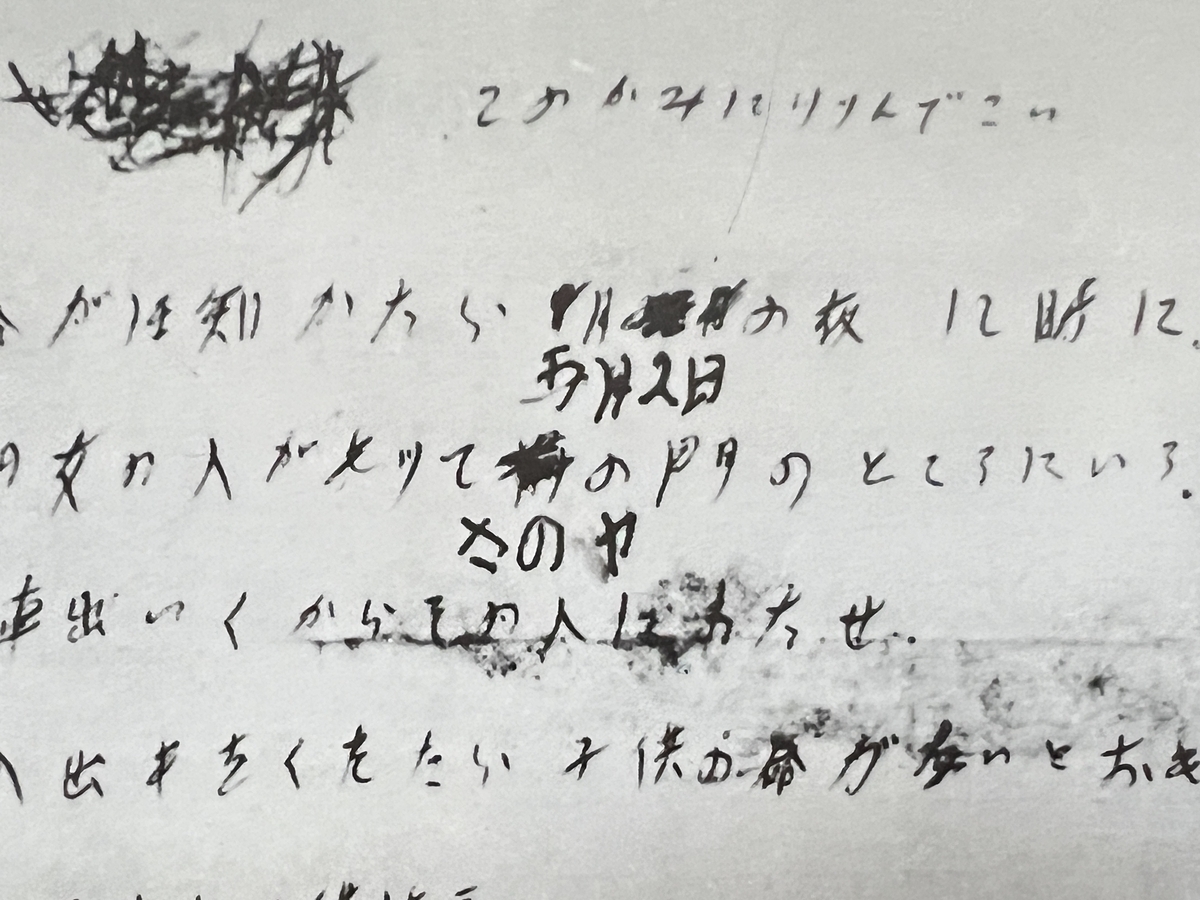 このかみにツツんでこい
がほ知かたら の夜 12時に、
五月2日
の女の人が元ツて の門のところにいろ。
さのヤ
車出いくからその人にわたせ。
出もをくれたら 子供の命がないとおも